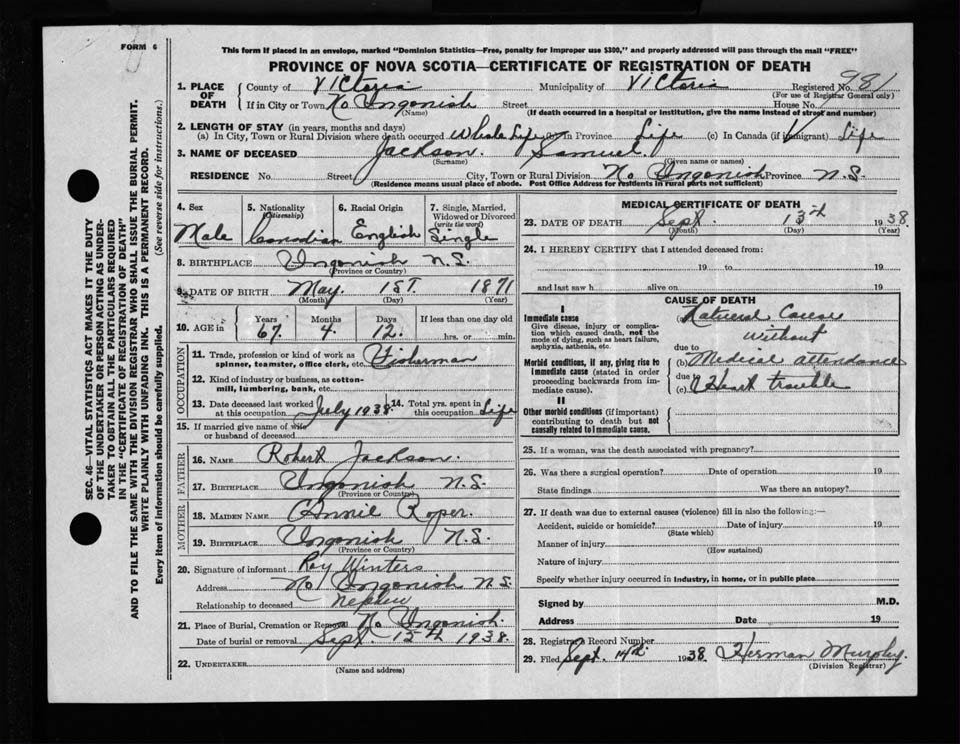 FORM 6
This form if placed in an envelope, marked "Dominion Statistics—Free, penalty for improper use $300," and properly addressed will pass through the mail "FREE"
PROVINCE OF NOVA SCOTIA—CERTIFICATE OF REGISTRATION OF DEATH
SEC. 46—VITAL STATISTICS ACT MAKES IT THE DUTY
OF THE UNDERTAKER OR PERSON ACTING AS UNDER-
TAKER TO OBTAIN ALL THE PARTICULARS REQUIRED
IN THE "CERTIFICATE OF REGISTRATION OF DEATH"
AND TO FILE THE SAME WITH THE DIVISION REGISTRAR WHO SHALL ISSUE THE BURIAL PERMIT.
WRITE PLAINLY WITH UNFADING INK. THIS IS A PERMANENT RECORD.
Every item of information should be carefully supplied. (See reverse side for instructions.)
1. PLACE OF DEATH
County of Victoria Municipality of Victoria Registered No. 981
(For use of Registrar General only)
If in City or Town No Ingonish Street House No.
(Name) (If death occurred in a hospital or institution, give the name instead of street and number)
2. LENGTH OF STAY (in years, months and days)
(a) In City, Town or Rural Division where death occurred Whole Life in Province Life (c) In Canada (if immigrant) Life
3. NAME OF DECEASED Jackson. Samuel
(Surname) (Given name or names)
RESIDENCE No. Street City, Town or Rural Division No Ingonish Province N.S.
(Residence means usual place of abode. Post Office Address for residents in rural parts not sufficient)
4. Sex 5. Nationality (Citizenship) 6. Racial Origin 7. Single, Married, Widowed or Divorced (write the word)
Male Canadian English Single
8. BIRTHPLACE Ingonish N.S.
(Province or Country)
9. DATE OF BIRTH May. 1st. 1871
(Month) (Day) (Year)
10. AGE in Years Months Days If less than one day old
67. 4. 12. hrs. or min.
OCCUPATION
11. Trade, profession or kind of work as spinner, teamster, office clerk, etc. Fisherman
12. Kind of industry or business, as cotton-mill, lumbering, bank, etc.
13. Date deceased last worked at this occupation July 1938. 14. Total yrs. spent in this occupation Life
15. If married give name of wife or husband of deceased
FATHER
16. NAME Robert Jackson.
17. BIRTHPLACE Ingonish N.S.
(Province or Country)
MOTHER
18. MAIDEN NAME Annie Roper.
19. BIRTHPLACE Ingonish N.S.
(Province or Country)
20. Signature of informant Roy Winters
Address No Ingonish N.S.
Relationship to deceased Nephew
21. Place of Burial, Cremation or Removal No Ingonish.
Date of burial or removal Sept. 15th 1938.
22. UNDERTAKER
(Name and address)
MEDICAL CERTIFICATE OF DEATH
23. DATE OF DEATH Sept. 13th 1938.
(Month) (Day) (Year)
24. I HEREBY CERTIFY that I attended deceased from:
19 to 19
and last saw h alive on 19
CAUSE OF DEATH
I
Immediate cause (a) Natural Cause
Give disease, injury or complication which caused death, not the mode of dying, such as heart failure, asphyxia, asthenia, etc.
without
due to
Morbid conditions, if any, giving rise to immediate cause (stated in order proceeding backwards from immediate cause).
(b) Medical attendance
due to
(c) Heart trouble
II
Other morbid conditions (if important) contributing to death but not causally related to immediate cause.
25. If a woman, was the death associated with pregnancy?
26. Was there a surgical operation? Date of operation 19
State findings Was there an autopsy?
27. If death was due to external causes (violence) fill in also the following:—
Accident, suicide or homicide? Date of injury 19
(State which)
Manner of injury
(How sustained)
Nature of injury
Specify whether injury occurred in industry, in home, or in public place
Signed by M.D.
Address Date 19
28. Registrar's Record Number
29. Filed Sept. 14th 1938 Herman Murphy.
(Division Registrar)